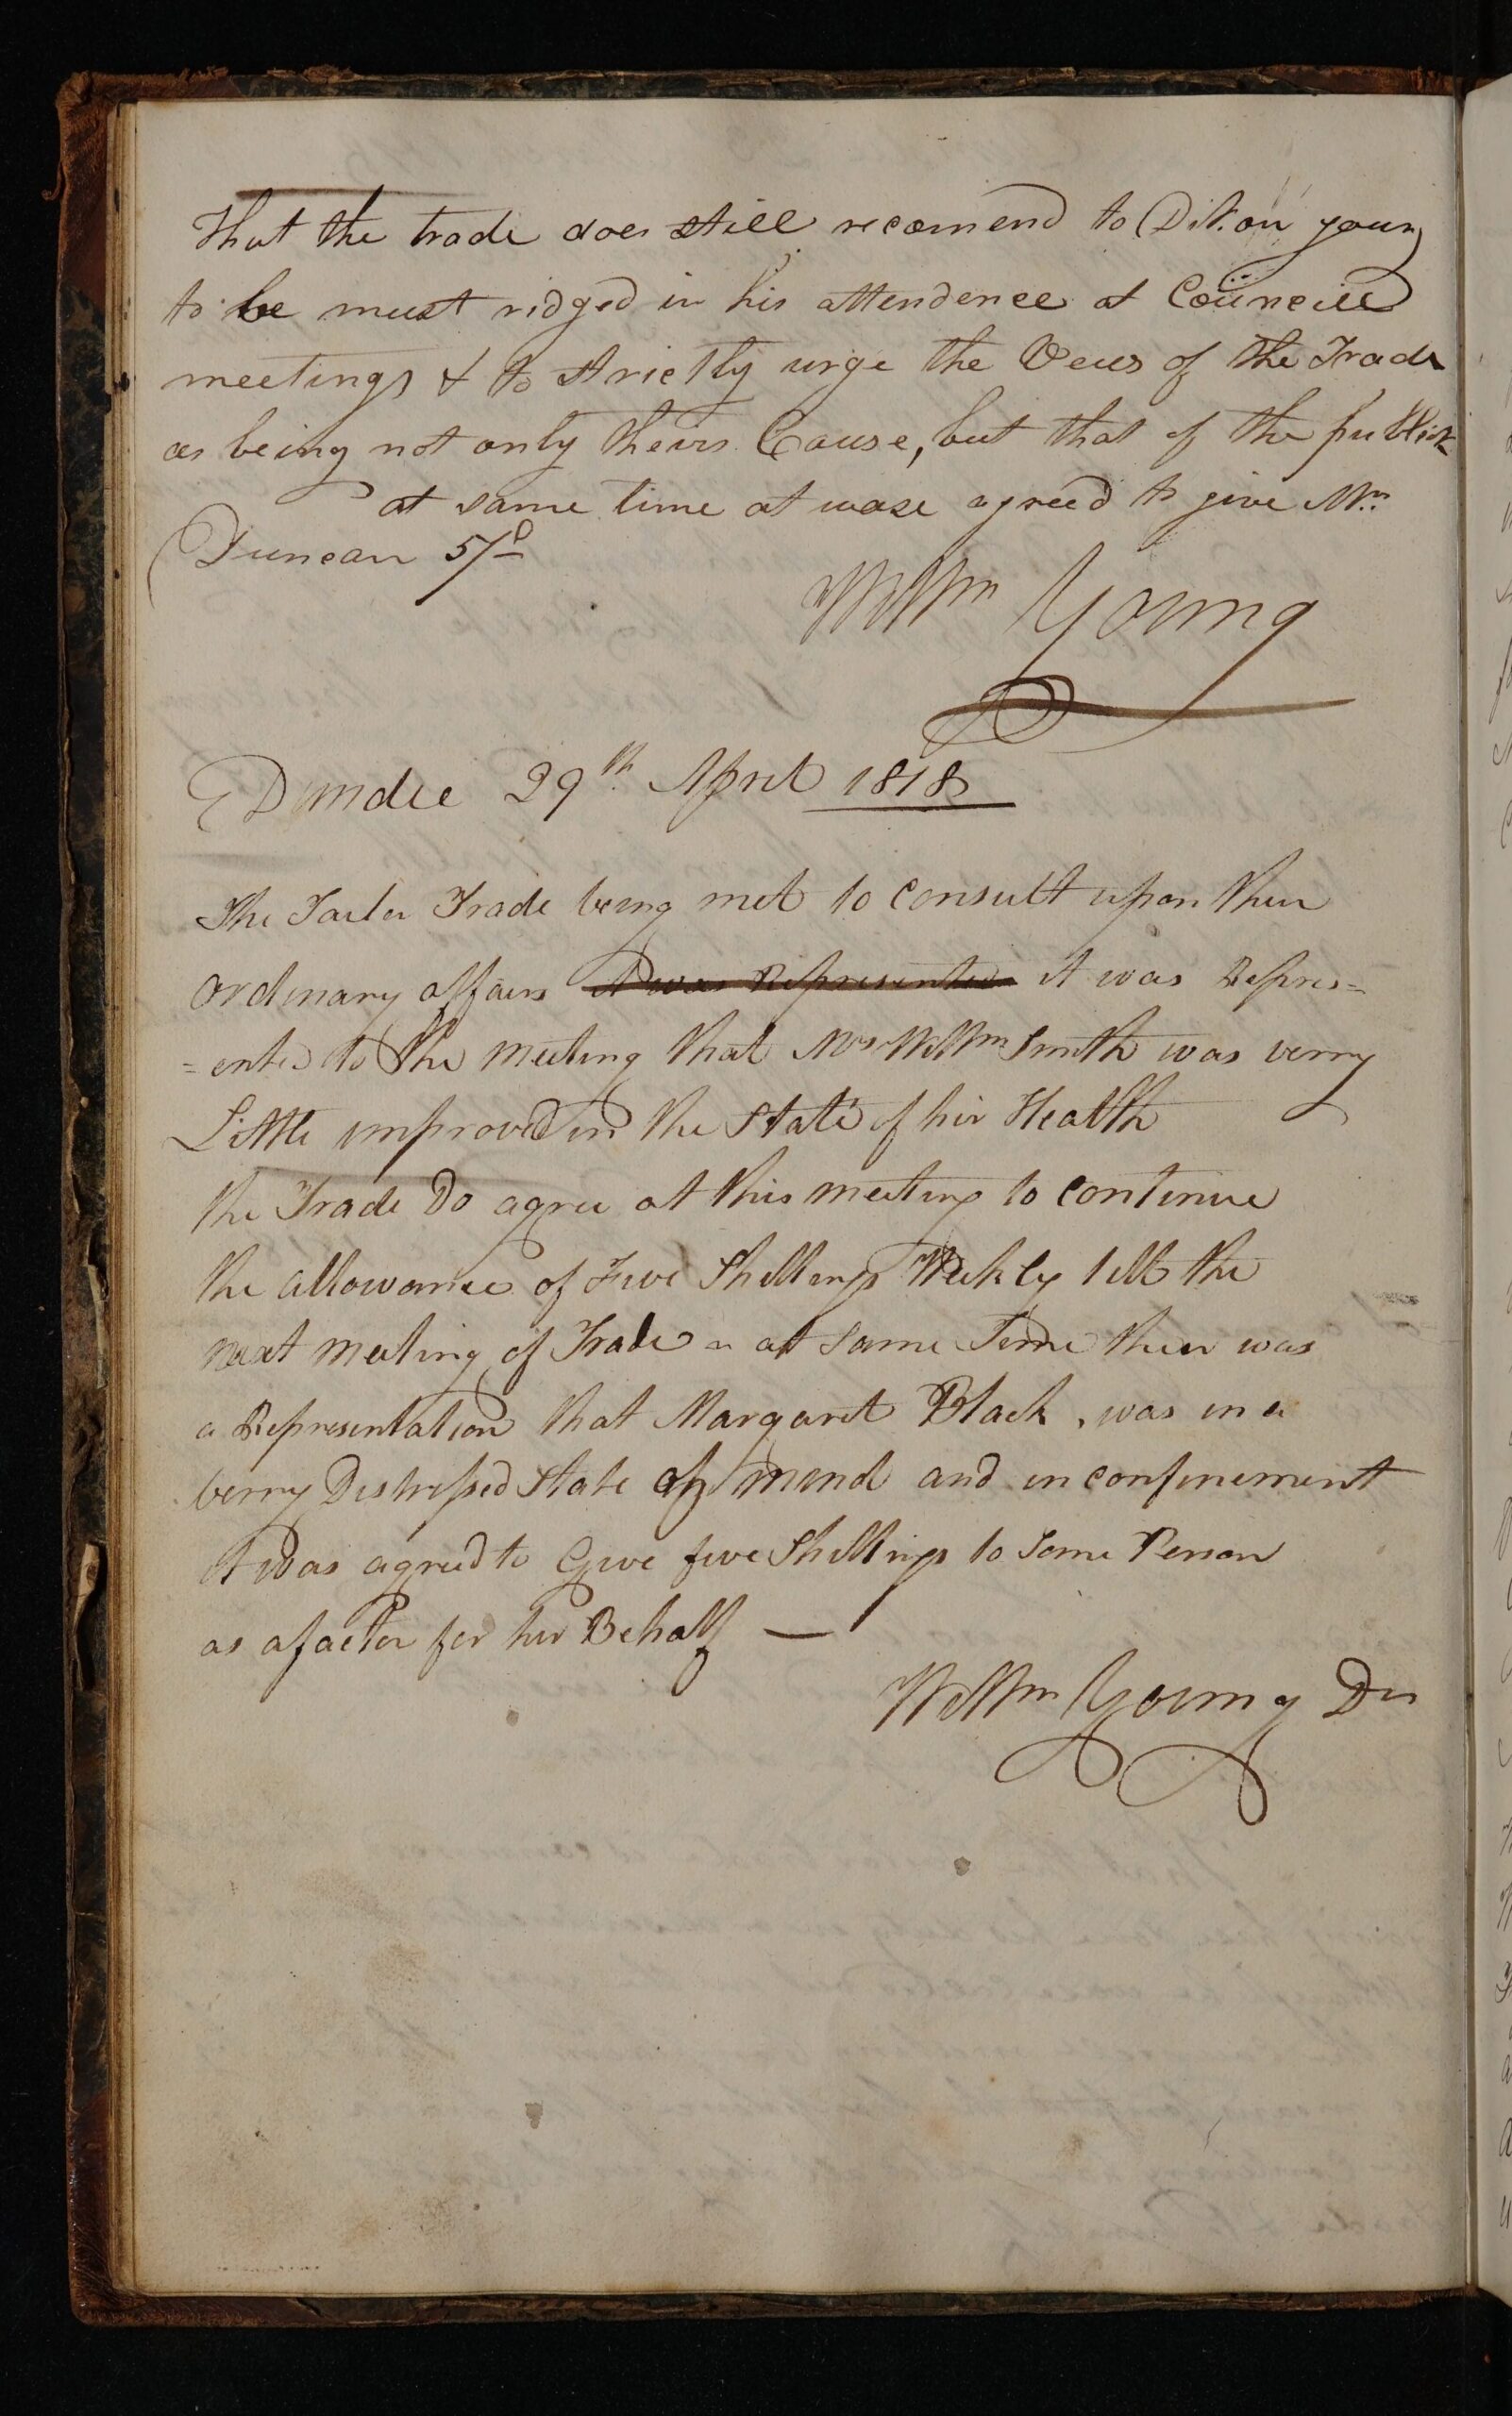 That the trade does still recomend to Dikon young
to be must ridged in his attendence at Councill
meetings & to strictly urge the Veus of the Trade
as being not only theirs Cause, but that of the publick
at same time at wase agreed to give Mrs
Duncan 5/
Willm Young
Dundee 29th April 1818
The Tailor Trade being met to Consult upon their
Ordinary affairs it was Represented it was Repres=
=ented to the meeting that Mrs Willm Smith was verry
Little improved in the State of hir Health
the Trade Do agree at this meeting to Continue
the allowance of Five Shillings Weekly till the
next meeting of Trade - at same Time their was
a Representation that Margaret Black, was in a
verry Distressed State of mind and in confinement
it was agreed to Give five Shillings to some Person
as a factor for her Behalf —
Willm Young Dn